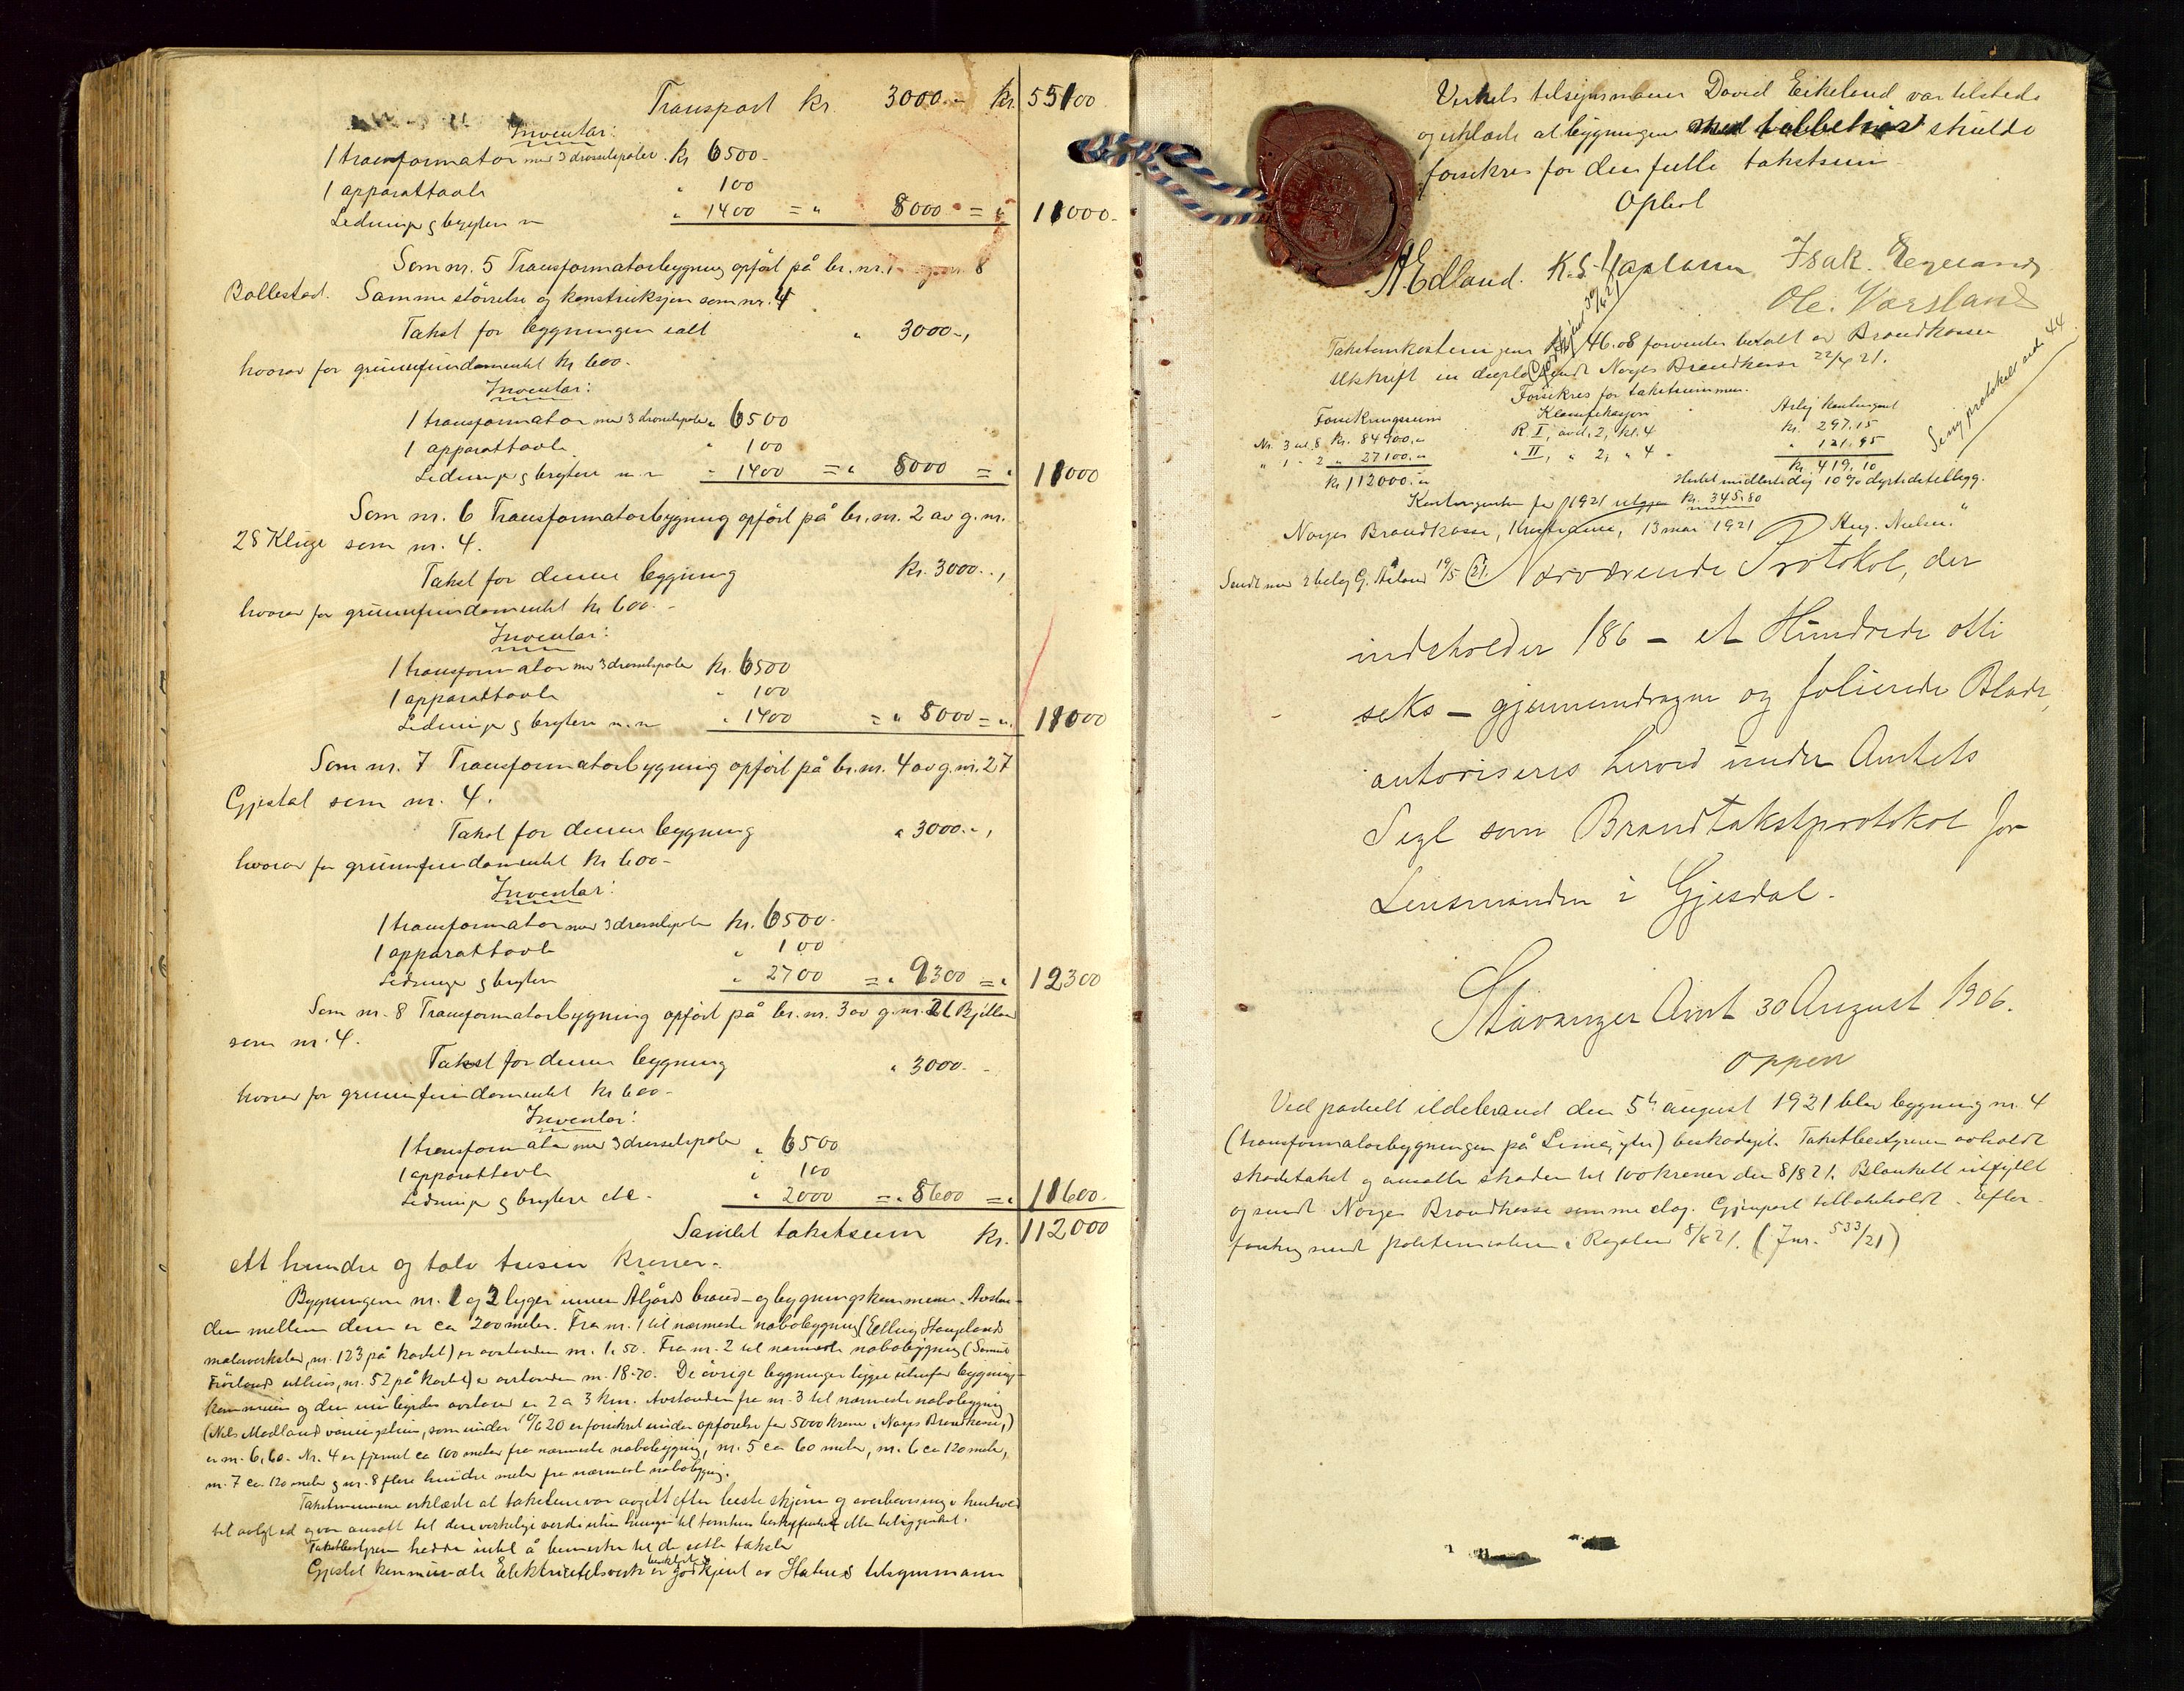 Transport kr. 3000.- kr. 55100
Inventar:
1 transformator med 3 drosselspoler kr. 6500.-
1 apparattavle " 100
Ledninger og brytere m " 1400 = " 8000 = " 11000.-
Som nr. 5 Transformatorbygning opført på br. nr. 1 g. nr. 8
Bollestad. Samme størrelse og konstruksjon som nr. 4
Takst for bygningen ialt " 3000.-,
hvorav for grunnfundamentet kr 600.-
Inventar:
1 transformator med 3 drosselspoler " 6500
1 apparattavle " 100
Ledninger og brytere m.m " 1400 = " 8000 = " 11000
Som nr. 6 Transformatorbygning opført på br. nr. 2 av g. nr.
28 Kluge som nr. 4.
Takst for denne bygning kr. 3000.-,
hvorav for grunnfundamentet kr 600.-
Inventar:
1 transformator med 3 drosselspoler kr. 6500
1 apparattavle " 100
Ledninger og brytere m.m " 1400 = " 8000 = " 11000
Som nr. 7 Transformatorbygning opført på br. nr. 4 av g. nr. 27
Gjestal som nr. 4.
Takst for denne bygning " 3000.-,
hvorav for grunnfundamentet kr 600.-
Inventar:
1 transformator med 3 drosselspoler kr. 6500.-
1 apparattavle " 100
Ledninger og brytere " 2700 = " 9300 = " 12300
Som nr. 8 Transformatorbygning opført på br. nr. 3 av g. nr. 21
som nr. 4.
Takst for denne bygning " 3000.-
hvorav for grunnfundamentet kr 600.-
Inventar:
1 transformator med 3 drosselspoler " 6500
1 apparattavle " 100
Ledninger og brytere etc. " 2000 = " 8600 = " 11600.-
Samlet takstsum kr. 112000
ett hundre og tolv tusen kroner.-
Bygningene nr. 1 og 2 ligger innen Ålgårds brand- og bygningskommune. Avstan-
den mellem dem er ca 200 meter. Fra nr. 1 til nærmeste nabobygning (Elling Stangelands
malerverksted, nr. 123 på kartet) er avstanden m. 1.50. Fra nr. 2 til nærmeste nabobygning (Samuel
uthus, nr. 52 på kartet) er avstanden m. 18.70. De øvrige bygninger ligger utenfor bygnings-
kommunen og den innbyrdes avstand er 2 a 3 km. Avstanden fra nr. 3 til nærmeste nabobygning
(Nils Medland våningshus, som under er forsikret under opførelse for 5000 kroner i Norges Brandkasse,)
er m. 6,60. Nr. 4 er fjernet ca 100 meter fra nærmeste nabobygning, nr. 5 ca 60 meter, nr. 6 ca 120 meter,
nr. 7 ca 120 meter og nr. 8 flere hundre meter fra nærmeste nabobygning.
Takstmennene erklærte at takstene var avgitt efter beste skjønn og overbevisning i henhold
til avlagt ed og var ansatt til den virkelige verdi uten hensyn til tomtens beskaffenhet eller beliggenhet.
Takstbestyreren hadde intet å bemerke til de satte takster
Gjestal kommunale Elektrisitetsverk er godkjent av Statens tilsynsmann
Verkets tilsynsmann David Eikeland var tilstede
og erklærte at bygningen med tilbehør skulde
forsikres for den fulle takstsum
Oplest
A Edland. K. S. Isak.
Ole. Varsland
Takstomkostningene kr. 46.08 forventes betalt av Brandkassen
Utskrift in duplo sendt Norges Brandkasse 22/4 21.
Forsikres for takstsummen.
Forsikringssum Klassifikasjon Årlig Kontingent
Nr. 3 til 8 kr. 84900.- R. I, avd. 2, kl. 4 kr. 297.15
" 1 - 2 " 27100.- " II, " 2, " 4 " 121.95
kr. 112000.- kr. 419.10
Hertil midlertidig 10% dyrtidstillegg.
Kontingenten for 1921 utgjør kr. 345.80
Norges Brandkasse, Kristiania, 13 mai 1921 Aug. Nielsen."
Se ny protokol side 44
Sendt med 2 bilag G. Åsland 19/5 21.
Nærværende Protokol, der
indeholder 186 – et Hundrede otti
seks – gjennemdragne og folierede Blade,
autoriseres herved under Amtets
Segl som Brandtakstprotokol for
Lensmanden i Gjesdal.
Stavanger Amt 30 August 1906.
Oppen
Ved påstått ildebrand den 5te august 1921 blev bygning nr. 4
(transformatorbygningen på Lima, ytre) beskadiget. Takstbestyreren avholdt
skadetakst og ansatte skaden til 100 kroner den 8/8 21. Blankett utfyllt
og sendt Norges Brandkasse samme dag. Gjenpart tilbakeholdt. Efter-
forskning sendt politimesteren i Rogaland 8/8 21. (Jnr. 533/21)